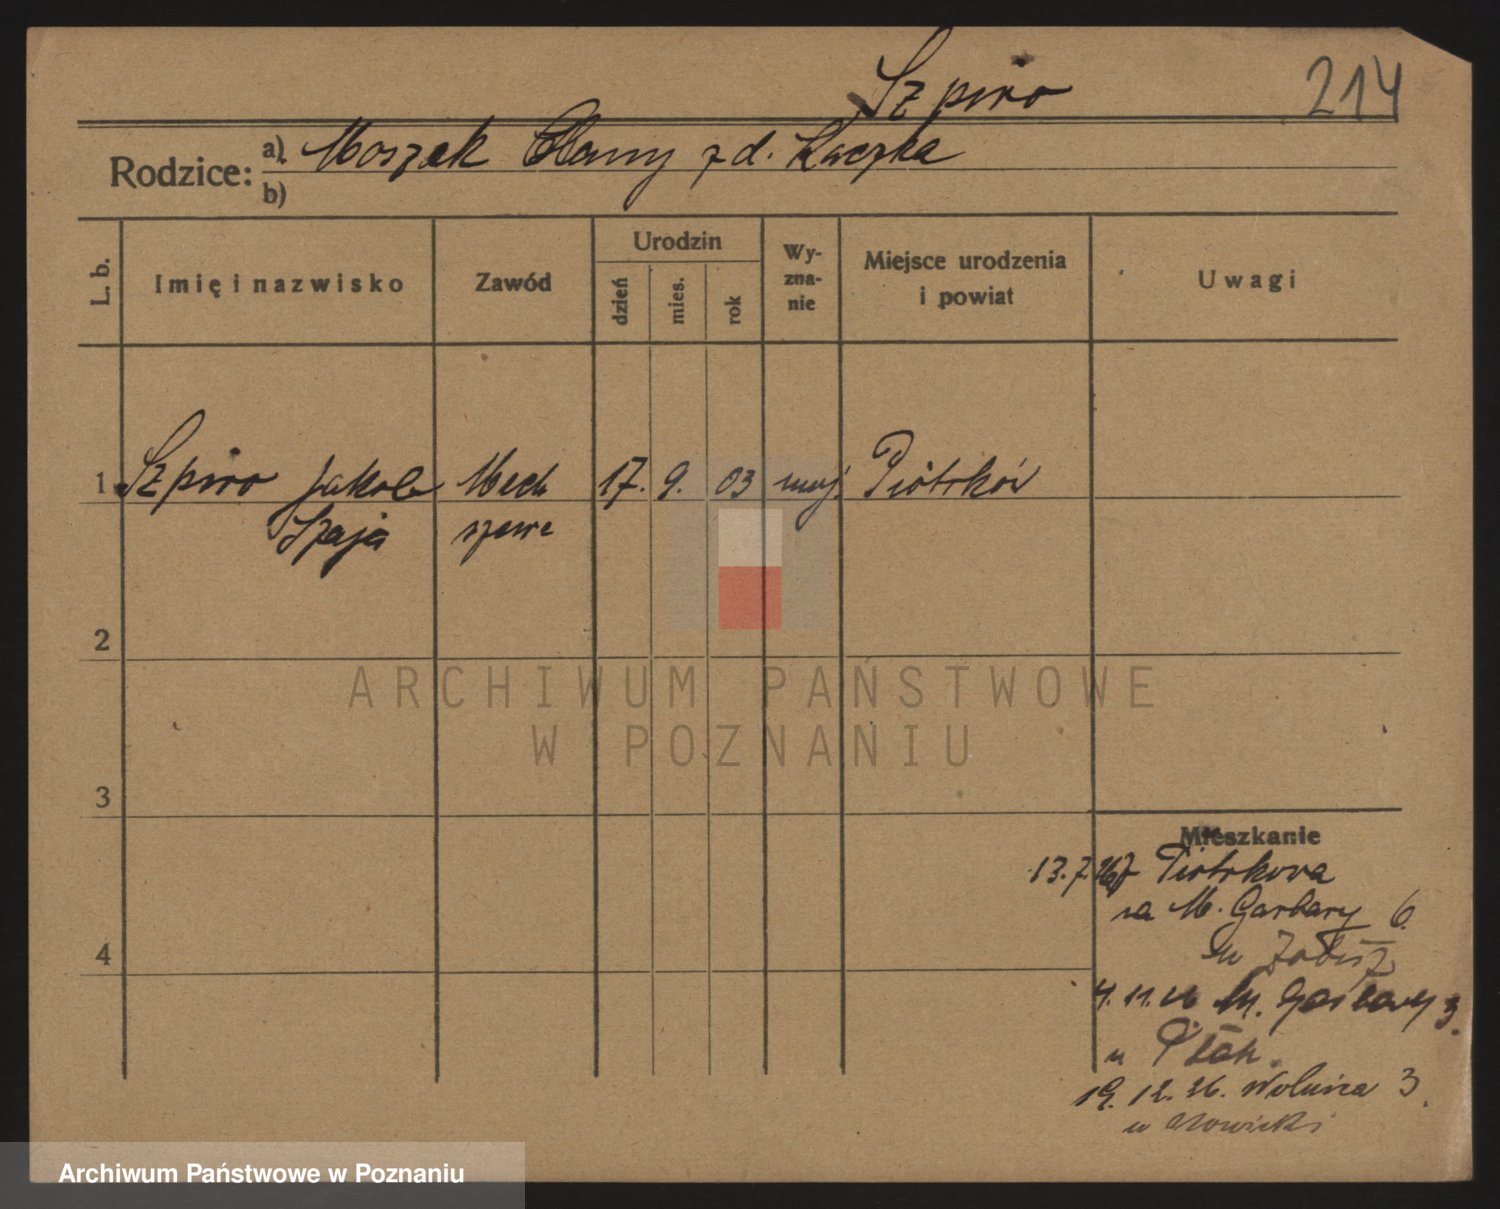 Szpiro
214
Rodzice:
a) Moszek Chany z d. Kaczka
b)
L. b.
Imię i nazwisko
Zawód
Urodzin
dzień
mies.
rok
Wy-
zna-
nie
Miejsce urodzenia
i powiat
Uwagi
1 Szpiro Jakob Mech 17. 9. 03 mojż Piotrków
Szaja szewc
2
3
4
ARCHIWUM PAŃSTWOWE
W POZNANIU
Mieszkanie
13.7.26 z Piotrkowa
na M. Garbary 6.
u
4.11.26 M. Garbary 3.
u Ptak.
19.12.26. Wolnica 3.
u
Archiwum Państwowe w Poznaniu